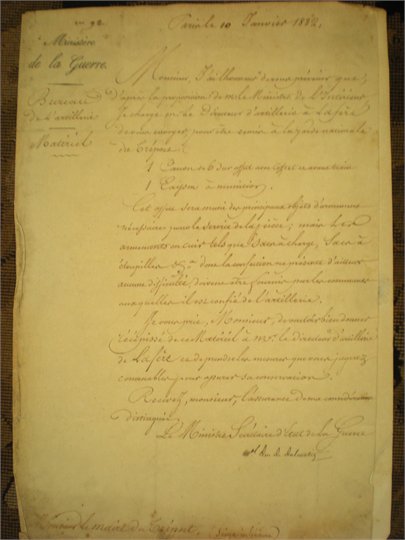 Paris le 10 Janvier 1832.
Ministère
de la Guerre.
Bureau
de l'artillerie
Matériel
Monsieur, J'ai l'honneur de vous prévenir que,
d'après la proposition de m. le Ministre de l'Intérieur,
je charge m. le Directeur d'artillerie à La fère
de vous envoyer, pour être remis à la garde nationale
de Crépy
1 Canon de 6 Sur affut avec Coffret et avant train
1 Caisson à munitions.
Cet affut sera muni des principaux objets d'armemens
nécessaires pour le Service de la pièce; mais les
armemens en cuir tels que Sacs à charge, Sacs à
étoupilles &.a dont la confection ne présente d'ailleurs
aucune difficulté, doivent être fournis par les communes
auxquelles il est confié de l'artillerie.
Je vous prie, Monsieur, de vouloir bien donner
récépissé de ce Matériel à Mr. le directeur d'artillerie
de La fère et de prendre les mesures que vous jugerez
convenables pour assurer sa conservation.
Recevez, monsieur, l'assurance de ma considération
distinguée.
Le Ministre Secrétaire d'état de la Guerre
Mal Duc de Dalmatie
Monsieur le maire de Crépy,